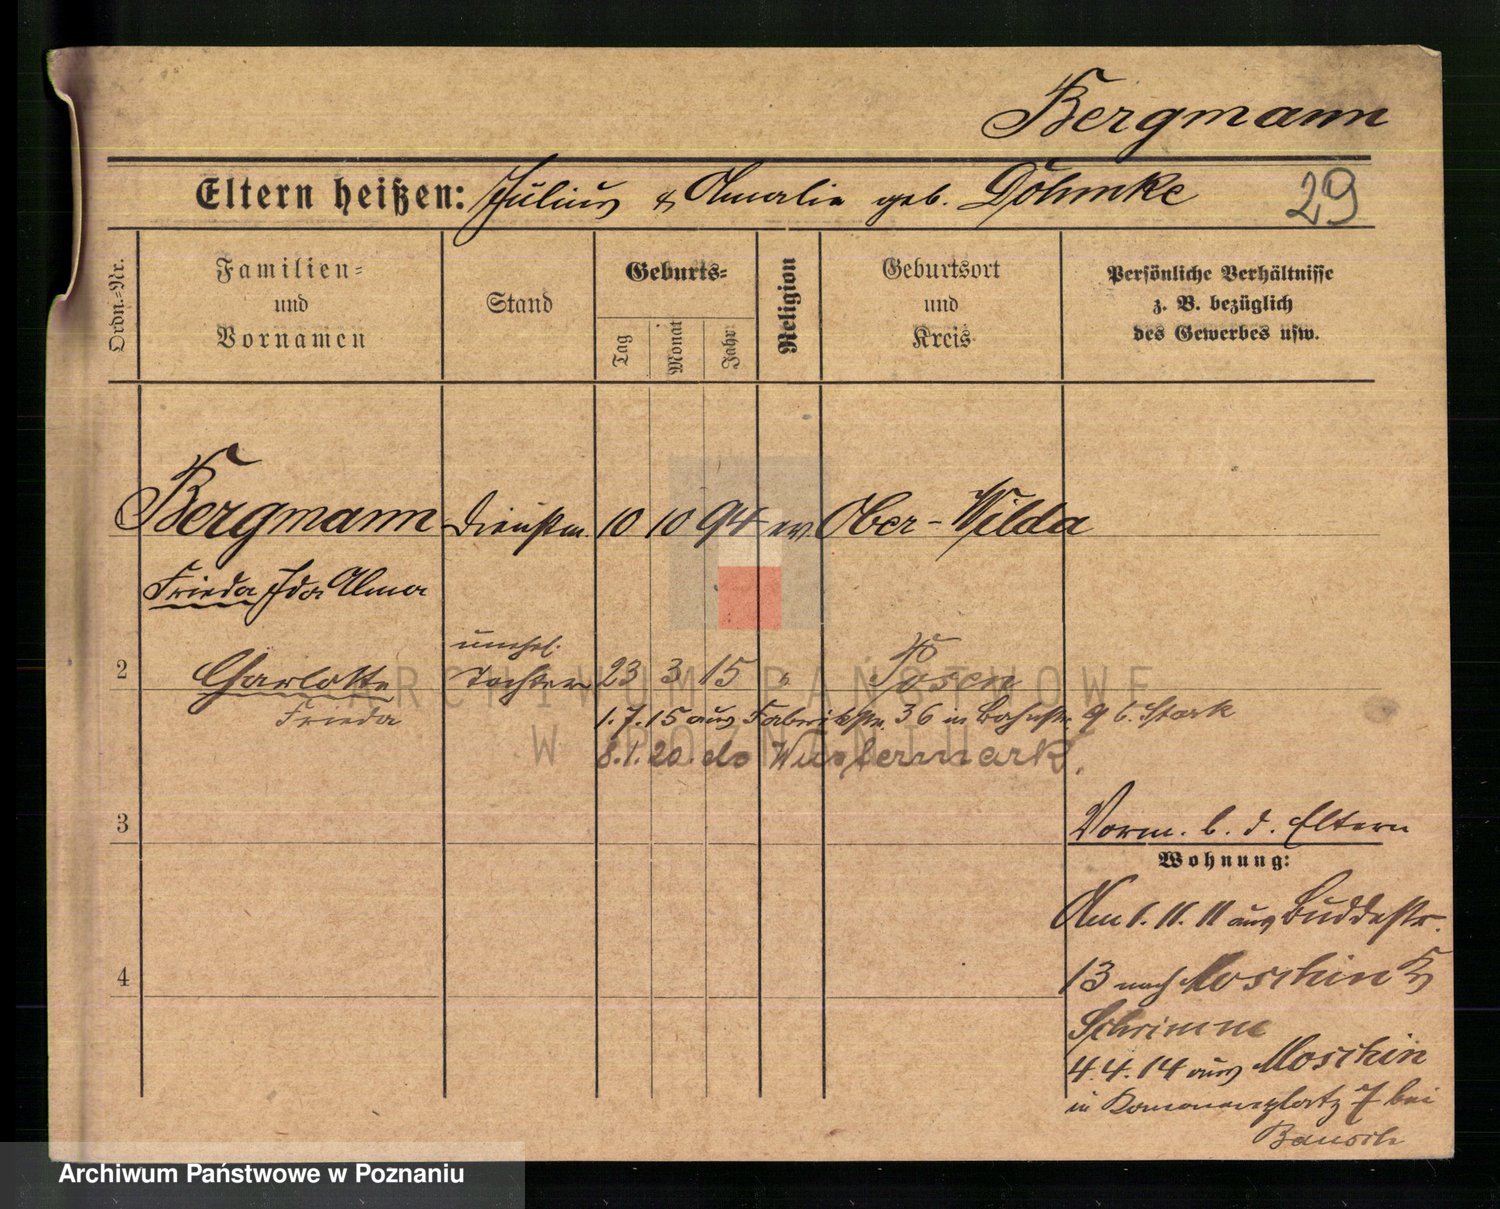 Bergmann
Eltern heißen: Julius & Amalie geb. Döhmke 29
Ordn.-Nr.
Familien- und Vornamen
Stand
Geburts-
Tag Monat Jahr
Religion
Geburtsort und Kreis
Persönliche Verhältnisse z. B. bezüglich des Gewerbes usw.
Bergmann Dienstm. 10 10 94 ev. Ober-Wilda
Frieda Ida Alma
unehl.
2 Charlotte Tochter 23 3 15 " Posen
Frieda
1.7.15 aus Fabrikstr. 36 in Bahnstr. 9 b. Stark
8.1.20. do Wustermark.
3
Vorm. b. d. Eltern
Wohnung:
Am 1.11.11 aus Buddestr.
13 nach Moschin Kr
4
Schrimm
4.4.14 aus Moschin
in 7 bei
ARCHIWUM PAŃSTWOWE
W POZNANIU
Archiwum Państwowe w Poznaniu